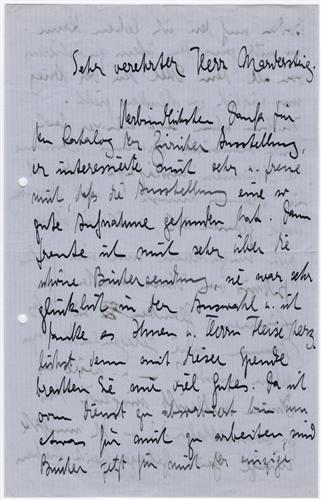 Sehr verehrter Herr Mardersteig.
Verbindlichsten Dank für
den Katalog der Züricher Ausstellung,
er interessierte mich sehr u. freue
mich, daß die Ausstellung eine so
gute Aufnahme gefunden hat. Dann
freute ich mich sehr über die
schöne Büchersendung, sie war sehr
glücklich in der Auswahl u. ich
danke es Ihnen u. Herrn Heise herz
lichst, denn mit dieser Spende
brachten Sie mir viel Gutes. Da ich
vom Dienst zu absorbiert bin um
etwas für mich zu arbeiten sind
Bücher jetzt für mich der einzige